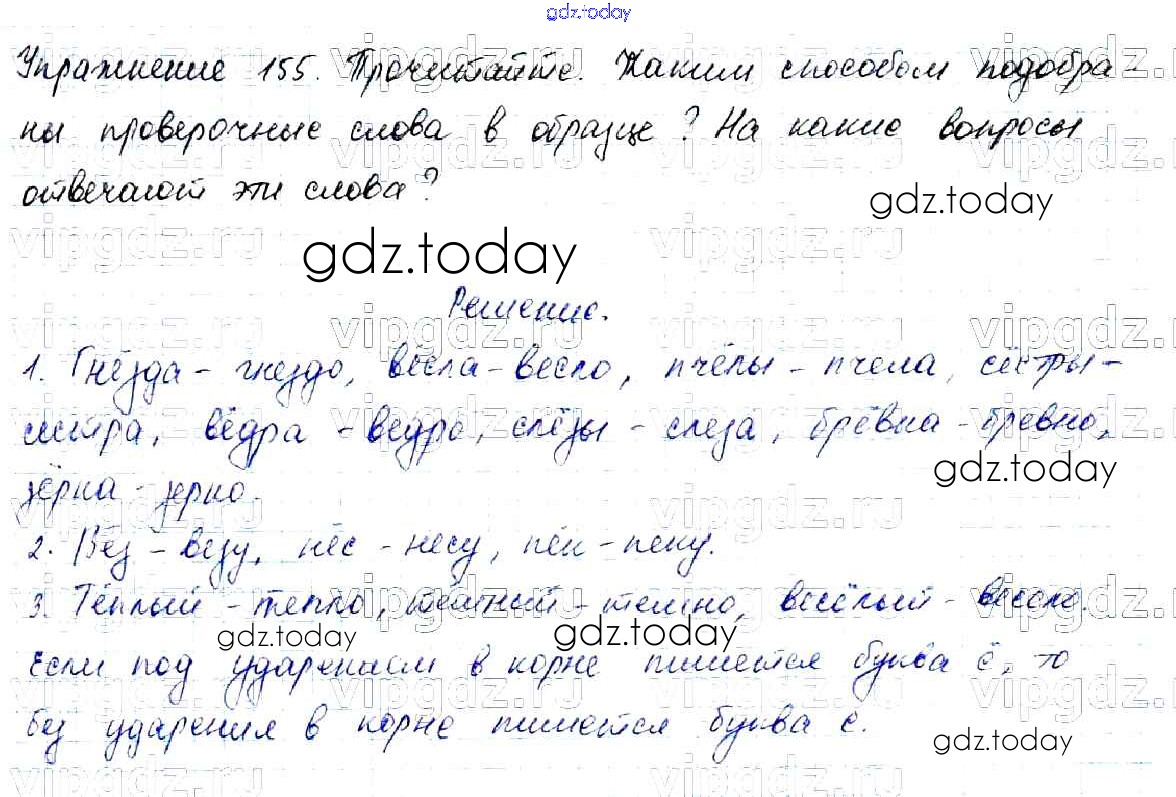 gdz.today
Упражнение 155. Прочитайте. Каким способом подобра-
ны проверочные слова в образце? На какие вопросы
отвечают эти слова?
gdz.today
gdz.today
Решение.
1. Гнёзда - гнездо, вёсла - весло, пчёлы - пчела, сёстры -
сестра, вёдра - ведро, слёзы - слеза, брёвна - бревно,
gdz.today
зёрна - зерно.
2. Вёз - везу, нёс - несу, пёк - пеку.
3. Тёплый - тепло, тёмный - темно, весёлый - весело.
gdz.today gdz.today
Если под ударением в корне пишется буква ё, то
без ударения в корне пишется буква е.
gdz.today
vipgdz.ru vipgdz.ru vipgdz.ru vipgdz.ru